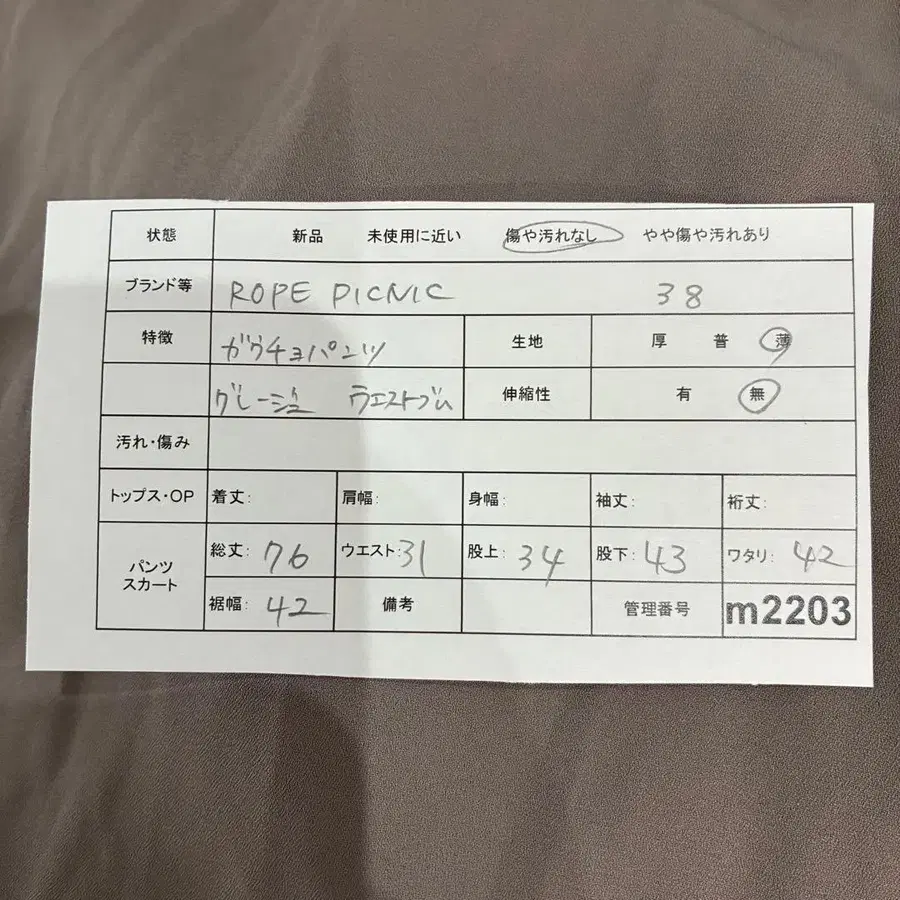 状態 新品 未使用に近い 傷や汚れなし やや傷や汚れあり
ブランド等 ROPE PICNIC 38
特徴 ガウチョパンツ 生地 厚 普 薄
グレージュ ウエストゴム 伸縮性 有 無
汚れ・傷み
トップス・OP 着丈: 肩幅: 身幅: 袖丈: 裄丈:
パンツ スカート 総丈: 76 ウエスト: 31 股上: 34 股下: 43 ワタリ: 42
裾幅: 42 備考 管理番号 m2203